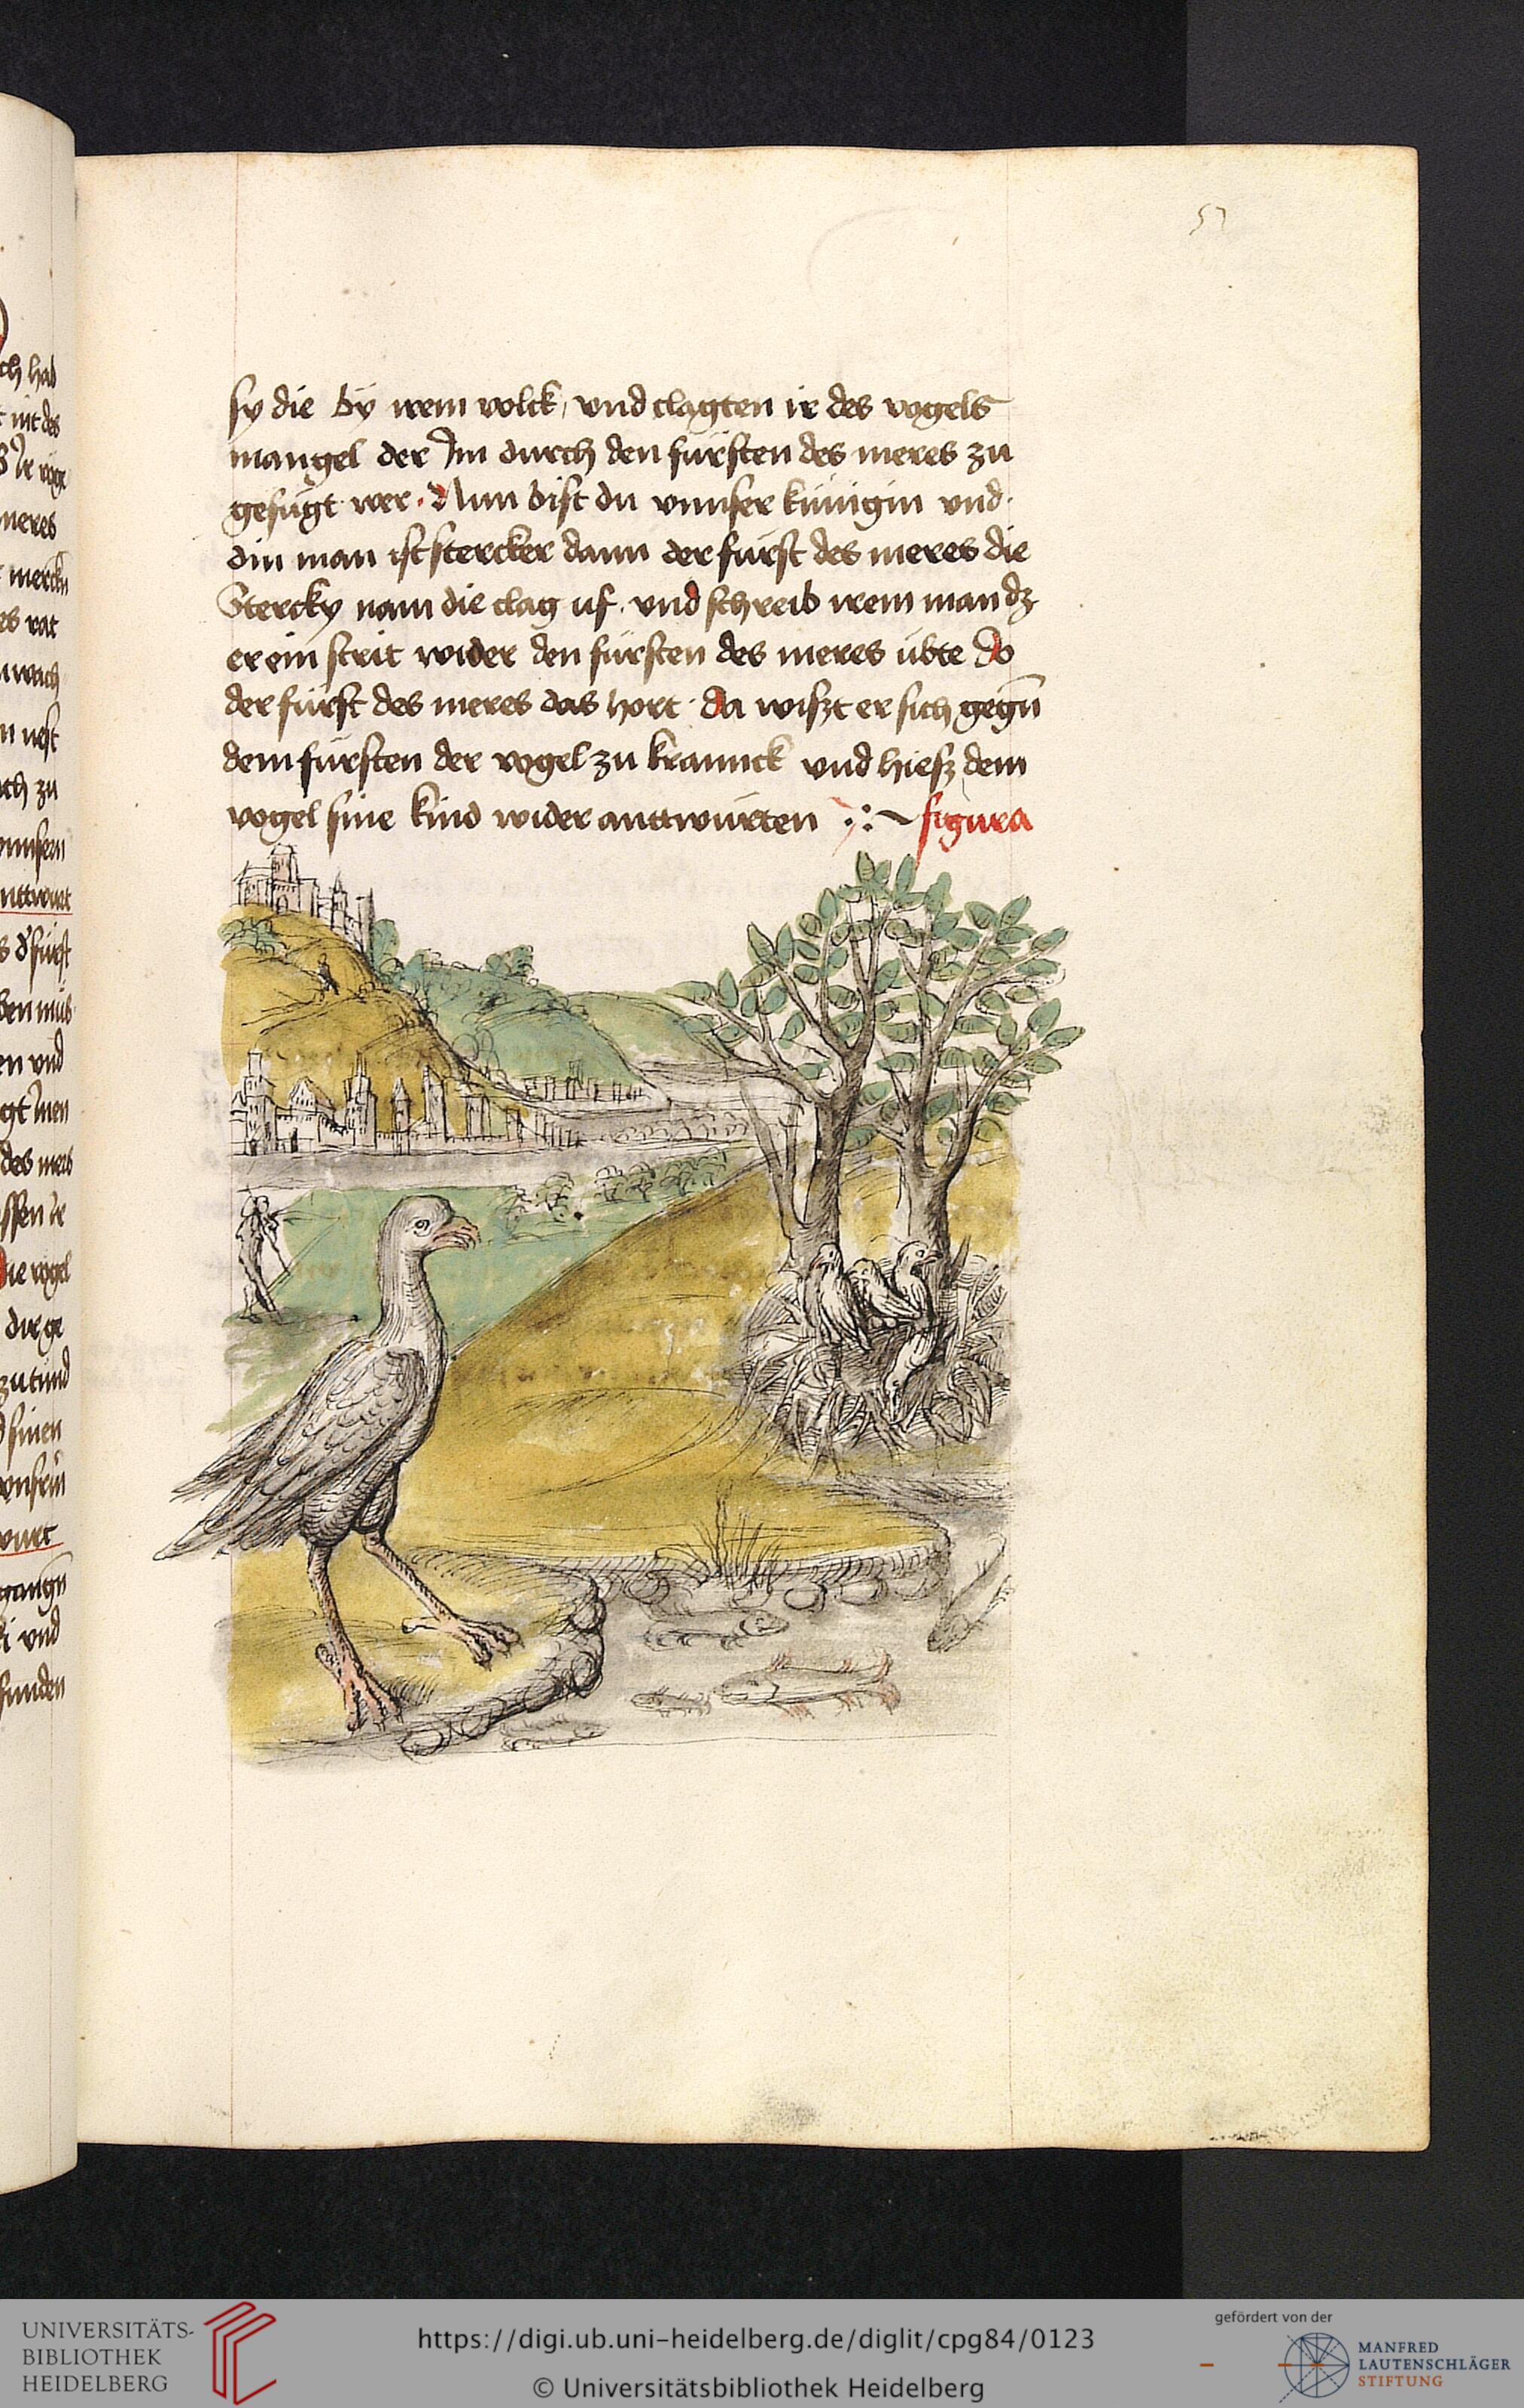 57
sy die by irem volck / vnd clagten ir des vogels
mangel der Im durch den fürsten des meres zu
gefügt wer. Nun bist du vnnser künigin vnd
din man ist stercker dann der fürst des meres die
Stercky nam die clag uf. vnd schreib irem man dz
er ein strit wider den fürsten des meres übte do
der fürst des meres das hort. da wißt er sich gegn̄
dem fürsten der vogel zu krannck vnd hiesz dem
vogel sine kind wider anttwürten ·:~ figura
ch had
nit des
meres
es rat
n nest
ch zu
des meres
ssen
die vogel
dir ge
zutund
sinen
vnd
funden
UNIVERSITÄTS-
BIBLIOTHEK
HEIDELBERG
https://digi.ub.uni-heidelberg.de/diglit/cpg84/0123
© Universitätsbibliothek Heidelberg
gefördert von der
MANFRED
LAUTENSCHLÄGER
STIFTUNG